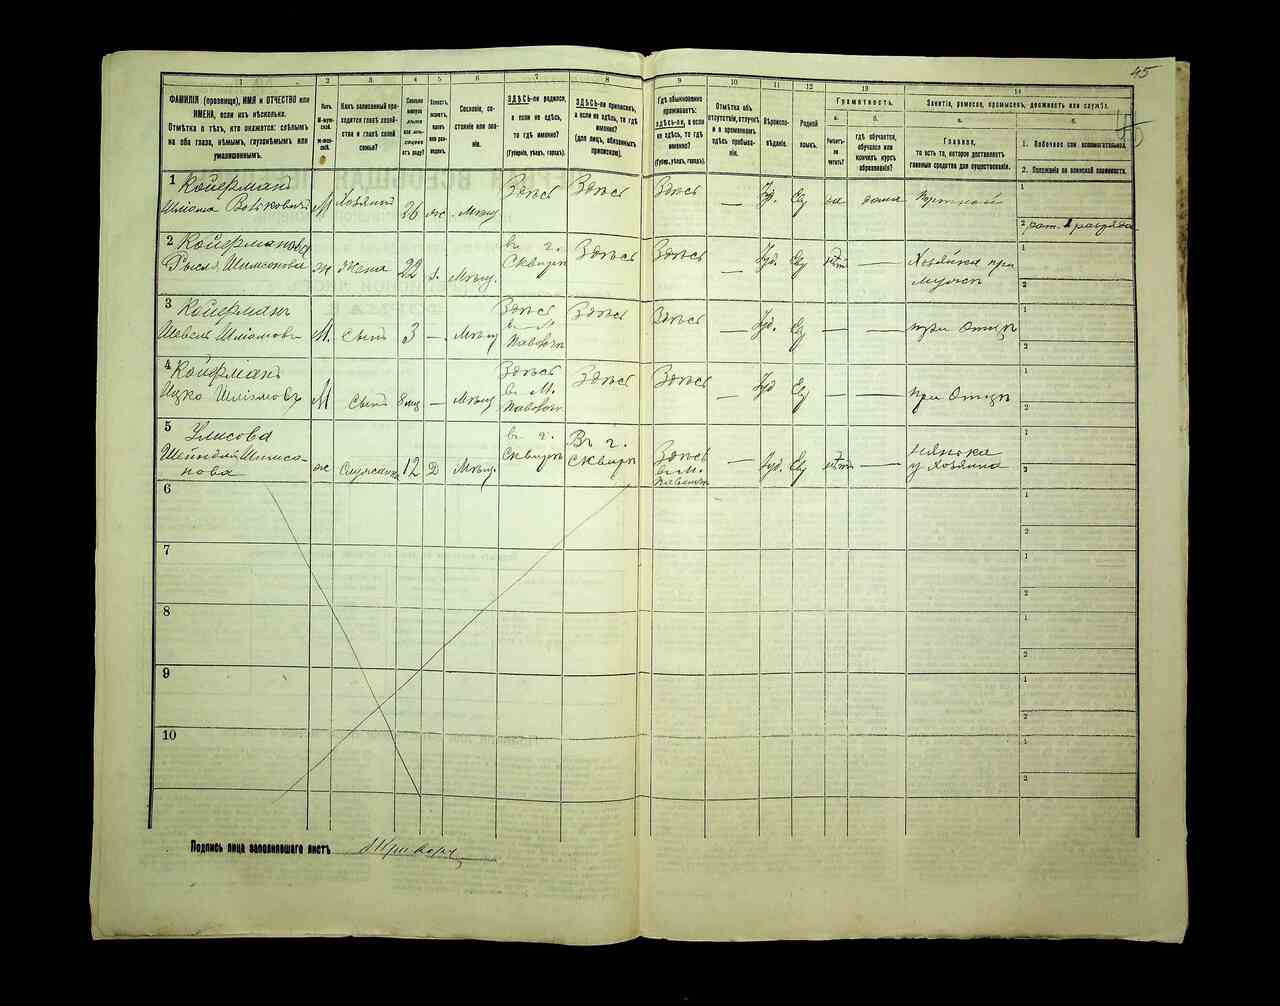 45
1 2 3 4 5 6 7 8 9 10 11 12 13 14
ФАМИЛІЯ (прозвище), ИМЯ и ОТЧЕСТВО или ИМЕНА, если ихъ нѣсколько.
Отмѣтка о тѣхъ, кто окажется: слѣпымъ на оба глаза, нѣмымъ, глухонѣмымъ или умалишеннымъ.
Полъ.
М-мужской.
Ж-женскій.
Какъ записанный приходится главѣ хозяйства и главѣ своей семьи?
Сословіе, состояніе или званіе.
ЗДѢСЬ-ли родился, а если не здѣсь, то гдѣ именно?
(Губернія, уѣздъ, городъ).
ЗДѢСЬ-ли приписанъ, а если не здѣсь, то гдѣ именно?
(для лицъ, обязанныхъ припискою).
Гдѣ обыкновенно проживаетъ: ЗДѢСЬ-ЛИ, а если не здѣсь, то гдѣ именно?
(Губер., уѣздъ, городъ).
Отмѣтка объ отсутствіи, отлучкѣ и о временномъ здѣсь пребываніи.
Вѣроисповѣданіе.
Родной языкъ.
Грамотность.
а. Умѣетъ-ли читать?
б. гдѣ обучается, обучался или кончилъ курсъ образованія?
Занятіе, ремесло, промыселъ, должность или служба.
а. Главное, то есть то, которое доставляетъ главныя средства для существованія.
б.
1. Побочное или вспомогательное.
2. Положеніе по воинской повинности.
1 Койфманъ
Шліома Волковичъ М Хозяинъ 26 Мѣщ. Здѣсь Здѣсь Здѣсь — Іуд. Ев. дома Портной
2 рат. 1 разряда
2 Койфманова
Рысля Шимонова ж Жена 22 з. Мѣщ. въ г. Сквирѣ Здѣсь Здѣсь — Іуд. Ев. нѣтъ — Хозяйка при мужѣ
3 Койфманъ
Шліомовъ М. Сынъ 3 — Мѣщ. Здѣсь Здѣсь Здѣсь — Іуд. Ев. — — при Отцѣ
4 Койфманъ
Ицко Шліомовъ М Сынъ 8 мц — Мѣщ. Здѣсь въ М. Здѣсь Здѣсь — Іуд. Ев. при Отцѣ
5 Улисова
Шейндля
нова ж Служанка 12 Д Мѣщ. въ г. Сквирѣ Въ г. Сквирѣ Здѣсь въ М. — Іуд. Ев. нѣтъ — Нянька у Хозяина
6
7
8
9
10
Подпись лица заполнявшаго листъ